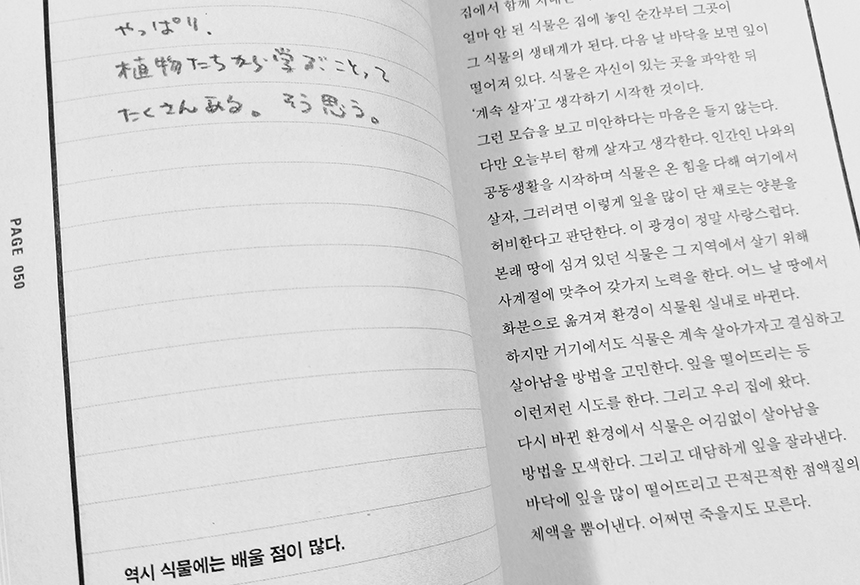 やっぱり、
植物たちから学ぶことって
たくさんある。そう思う。
PAGE 050
역시 식물에는 배울 점이 많다.
집에서 함께
얼마 안 된 식물은 집에 놓인 순간부터 그곳이
그 식물의 생태계가 된다. 다음 날 바닥을 보면 잎이
떨어져 있다. 식물은 자신이 있는 곳을 파악한 뒤
‘계속 살자’고 생각하기 시작한 것이다.
그런 모습을 보고 미안하다는 마음은 들지 않는다.
다만 오늘부터 함께 살자고 생각한다. 인간인 나와의
공동생활을 시작하며 식물은 온 힘을 다해 여기에서
살자, 그러려면 이렇게 잎을 많이 단 채로는 양분을
허비한다고 판단한다. 이 광경이 정말 사랑스럽다.
본래 땅에 심겨 있던 식물은 그 지역에서 살기 위해
사계절에 맞추어 갖가지 노력을 한다. 어느 날 땅에서
화분으로 옮겨져 환경이 식물원 실내로 바뀐다.
하지만 거기에서도 식물은 계속 살아가자고 결심하고
살아남을 방법을 고민한다. 잎을 떨어뜨리는 등
이런저런 시도를 한다. 그리고 우리 집에 왔다.
다시 바뀐 환경에서 식물은 어김없이 살아남을
방법을 모색한다. 그리고 대담하게 잎을 잘라낸다.
바닥에 잎을 많이 떨어뜨리고 끈적끈적한 점액질의
체액을 뿜어낸다. 어쩌면 죽을지도 모른다.